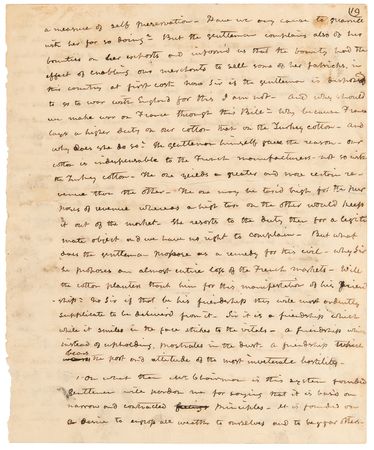 19
a measure of self preservation - Have we any cause to quarrel
with her for so doing - But the gentleman complains also of her
bounties on her exports and informs us that the bounty had the
effect of enabling our merchants to sell some of her fabricks, in
this country at first cost. Now Sir is the gentleman is disposed
to go to war with England for this I am not. And why should
we make war on France through this Bill - Why because France
lays a higher duty on our cotton than on the Turkey cotton - And
why does she do so? The gentleman himself gives the reason - Our
cotton is indispensable to the French manufacturers - not so with
the Turkey cotton - The one yields a greater and more certain re-
venue than the other - The one may be taxed high for the pur
poses of revenue whereas a high tax on the other would keep
it out of the market. She resorts to the duty then for a legiti
mate object and we have no right to complain - But what
does the gentleman propose as a remedy for this evil - Why Sir
he proposes an almost entire loss of the French markets - Will
the cotton planters thank him for this manifestation of his friend
ship? No Sir if that be his friendship they will most ardently
supplicate to be delivered from it - Sir it is a friendship which
while it smiles in the face strikes to the vitals - A friendship which
instead of upholding, prostrates in the dust. A friendship which
bears
the port and attitude of the most inveterate hostility -
On what then Mr Chairman is this system founded
Gentlemen will pardon me for saying that it is based on
narrow and contracted principles - It is founded on
a desire to engross all wealth to ourselves and to beggar other